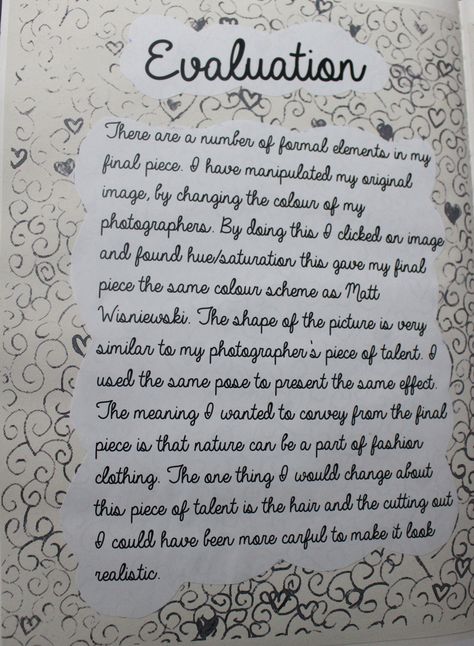 Evaluation
There are a number of formal elements in my
final piece. I have manipulated my original
image, by changing the colour of my
photographers. By doing this I clicked on image
and found hue/saturation this gave my final
piece the same colour scheme as Matt
Wisniewski. The shape of the picture is very
similar to my photographer's piece of talent. I
used the same pose to present the same effect.
The meaning I wanted to convey from the final
piece is that nature can be a part of fashion
clothing. The one thing I would change about
this piece of talent is the hair and the cutting out
I could have been more carful to make it look
realistic.